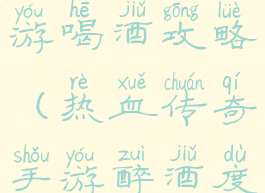 yóu hē jiǔ gōng lüè
游喝酒攻略
rè xuè chuán qí
（热血传奇
shǒu yóu zuì jiǔ dù
手游醉酒度